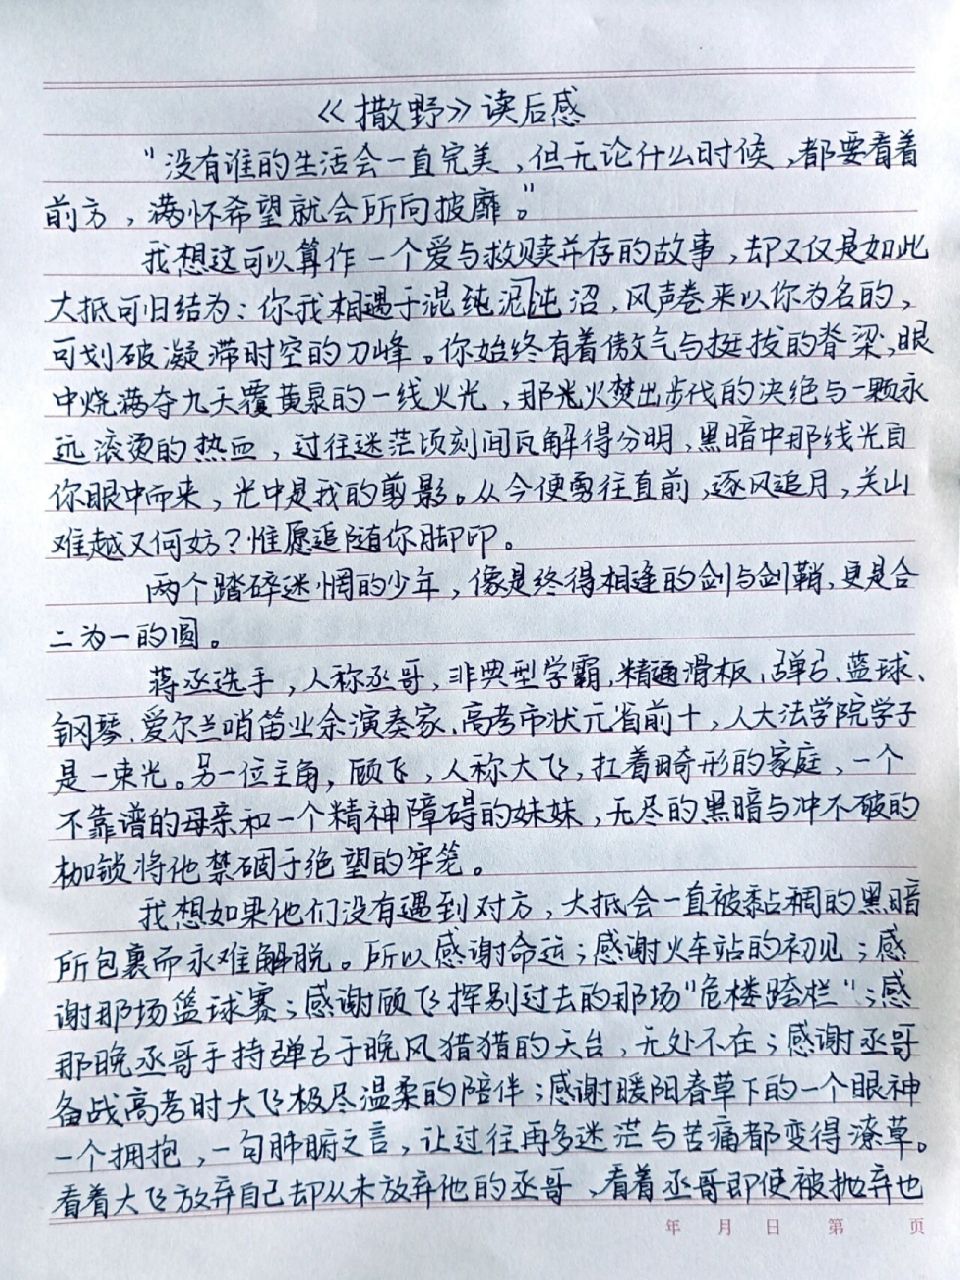 《撒野》读后感
“没有谁的生活会一直完美，但无论什么时候，都要看着
前方，满怀希望就会所向披靡。”
我想这可以算作一个爱与救赎并存的故事，却又仅是如此
大抵可归结为：你我相遇于混纯泥沌沼，风声卷来以你为名的，
可划破凝滞时空的刀峰。你始终有着傲气与挺拔的脊梁，眼
中烧满夺九天覆黄泉的一线火光，那光火焚出步伐的决绝与一颗永
远滚烫的热血，过往迷茫顷刻间瓦解得分明，黑暗中那线光自
你眼中而来，光中是我的剪影。从今便勇往直前，逐风追月，关山
难越又何妨？惟愿追随你脚印。
两个踏碎迷惘的少年，像是终得相逢的剑与剑鞘，更是合
二为一的圆。
蒋丞选手，人称丞哥，非典型学霸，精通滑板、弹弓、蓝球、
钢琴、爱尔兰哨笛业余演奏家、高考市状元省前十，人大法学院学子
是一束光。另一位主角，顾飞，人称大飞，扛着畸形的家庭，一个
不靠谱的母亲和一个精神障碍的妹妹，无尽的黑暗与冲不破的
枷锁将他禁锢于绝望的牢笼。
我想如果他们没有遇到对方，大抵会一直被黏稠的黑暗
所包裹而永难解脱。所以感谢命运；感谢火车站的初见；感
谢那场篮球赛；感谢顾飞挥别过去的那场“危楼跨栏”；感
那晚丞哥手持弹弓于晚风猎猎的天台，无处不在；感谢丞哥
备战高考时大飞极尽温柔的陪伴；感谢暖阳春草下的一个眼神
一个拥抱，一句肺腑之言，让过往再多迷茫与苦痛都变得潦草。
看着大飞放弃自己却从未放弃他的丞哥，看着丞哥即使被抛弃也
年 月 日 第 页